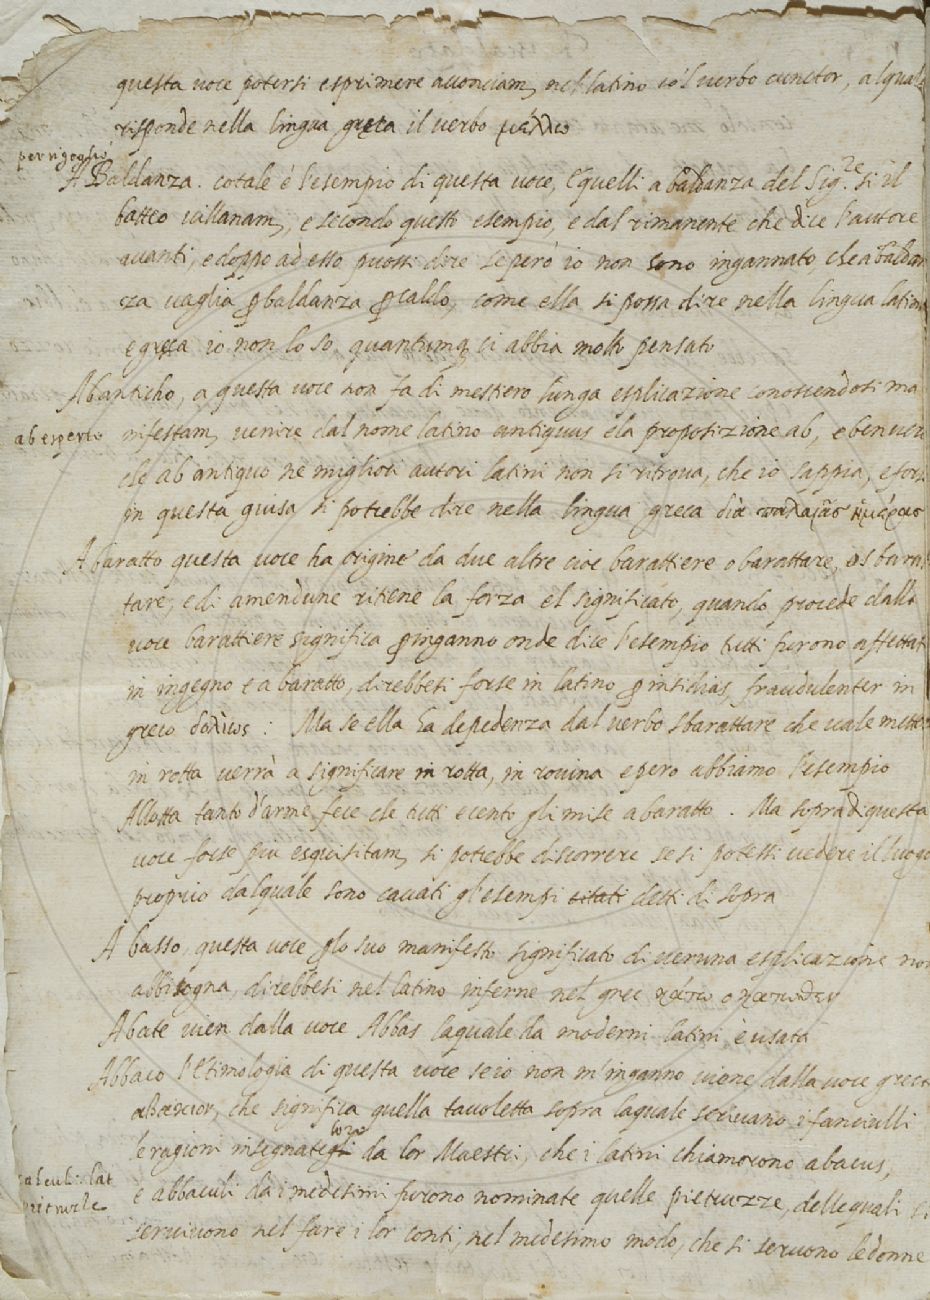 questa voce potersi esprimere acconciam. nel latino col verbo cunctor, al quale
risponde nella lingua greca il verbo μέλλω
per rigoglio
A Baldanza. cotale è l'esempio di questa voce, E quelli a baldanza del Sig.re si il
batteo villanam., e secondo questo esempio, e dal rimanente che dice l'autore
avanti, e doppo ad esso puossi dire se però io non sono ingannato, che a baldan
za vaglia p baldanza p caldo, come ella si possa dire nella lingua latina
e greca io non lo so, quantunq. ci abbia molto pensato
Abanticho, a questa voce non fa di mestiero lunga esplicazione conoscendosi ma
ab esperto
nifestam. venire dal nome latino antiquus e la proposizione ab, e ben vero
che ab antiquo ne migliori autori latini non si ritrova, che io sappia, e forse
in questa guisa si potrebbe dire nella lingua greca διὰ παλαιᾶς ἡμέρας
A baratto questa voce ha origine da due altre cioe barattiere o barattare, o sbarat
tare, e di amendune ritiene la forza el significato, quando procede dalla
voce barattiere significa p inganno onde dice l'esempio tutti furono affettati
in ingegno e a baratto, direbbesi forse in latino p insidias, fraudulenter in
greco δολίως: Ma se ella ha depedenza dal verbo sbarattare che vale mette
in rotta verrà a significare in rotta, in rovina e pero abbiamo l'esempio
Allotta tanto d'arme fece che tutti e cento gli mise a baratto. Ma sopra di questa
voce forse piu esquisitam. si potrebbe discorrere se si potessi vedere il luogo
proprio dal quale sono cavati gl'esempi citati detti di sopra
A basso, questa voce p lo suo manifesto significato di veruna esplicazione non
abbisogna, direbbesi nel latino inferne nel grec κάτω ο κάτωθεν
Abate vien dalla voce Abbas la quale da moderni latini è usata
Abbaco l'Etimologia di questa voce se io non m'inganno viene dalla voce greca
αβακιον, che significa quella tavoletta sopra la quale scrivano i fanciulli
loro
le ragioni insegnategli da lor Maestri, che i latini chiamorono abacus,
calculi: lat
pietruzle
e abbaculi da i medesimi furono nominate quelle pietruzze, delle quali si
servivono nel fare i lor conti, nel medesimo modo, che si servono le donne